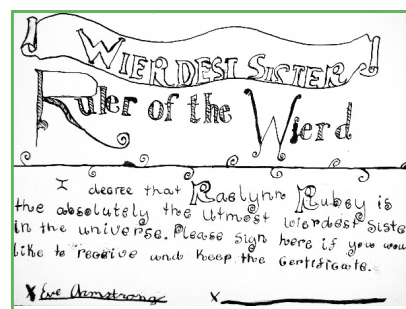 WIERDEST SISTER
Ruler of the Wierd
I degree that Raelynn Rubey is
the absolutely the utmost wierdest Siste
in the universe. Please sign here if you wou
like to receive and keep the certificate.
X Eve Armstrong X